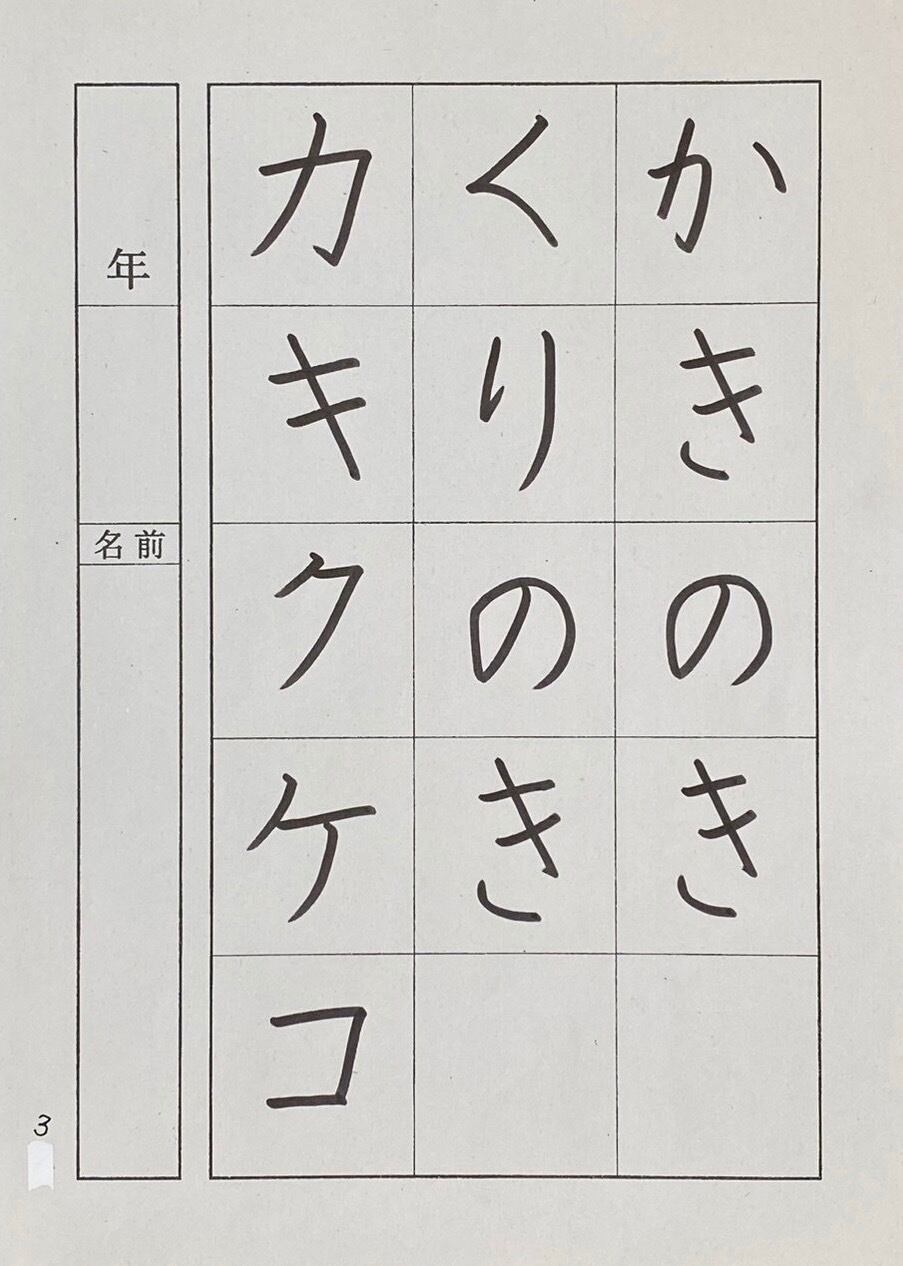 かきのき
くりのき
カキクケコ
年
名前
3